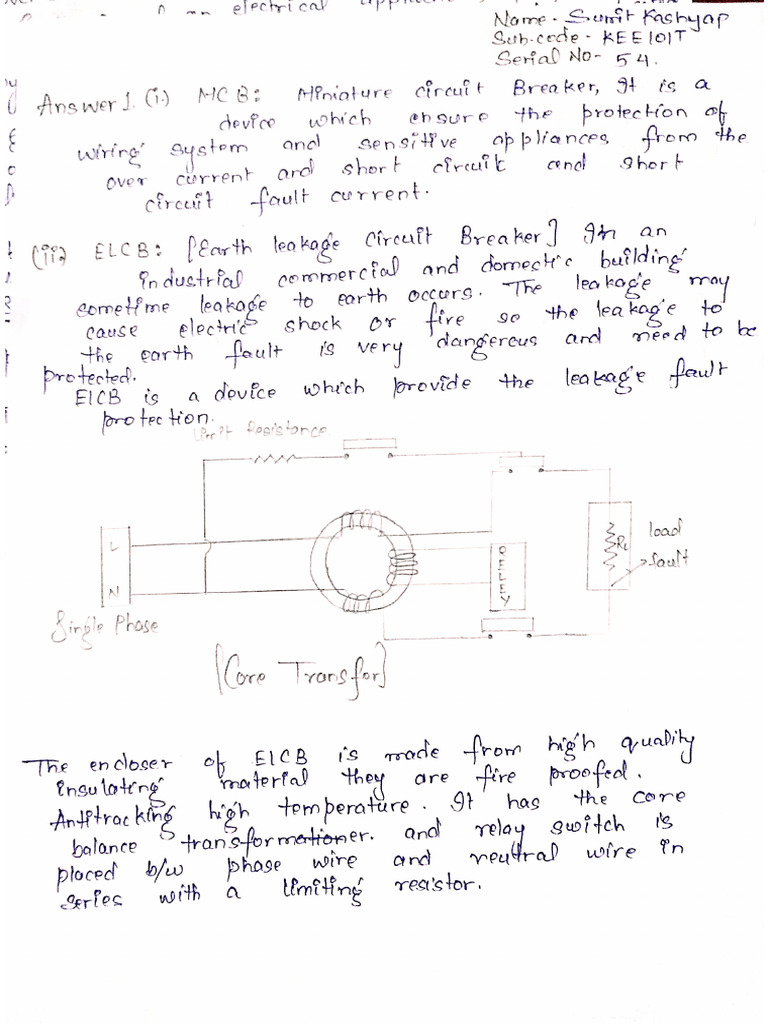 electrical
Name - Sumit Kashyap
Sub-code - KEE101T
Serial No - 54.
Answer 1. (i.) MCB: Miniature circuit Breaker, It is a
device which ensure the protection of
wiring system and sensitive appliances from the
over current and short circuit and short
circuit fault current.
(ii) ELCB: [Earth leakage Circuit Breaker] In an
industrial commercial and domestic building
sometime leakage to earth occurs. The leakage may
cause electric shock or fire so the leakage to
the earth fault is very dangerous and need to be
protected.
ElCB is a device which provide the leakage fault
protection.
Resistance
L
N
RELEY
RL
load
fault
Single Phase
[Core Transfor]
The encloser of ElCB is made from high quality
insulating material they are fire proofed.
Antitracking high temperature. It has the core
balance transformationer. and relay switch is
placed b/w phase wire and neutral wire in
series with a limiting resistor.